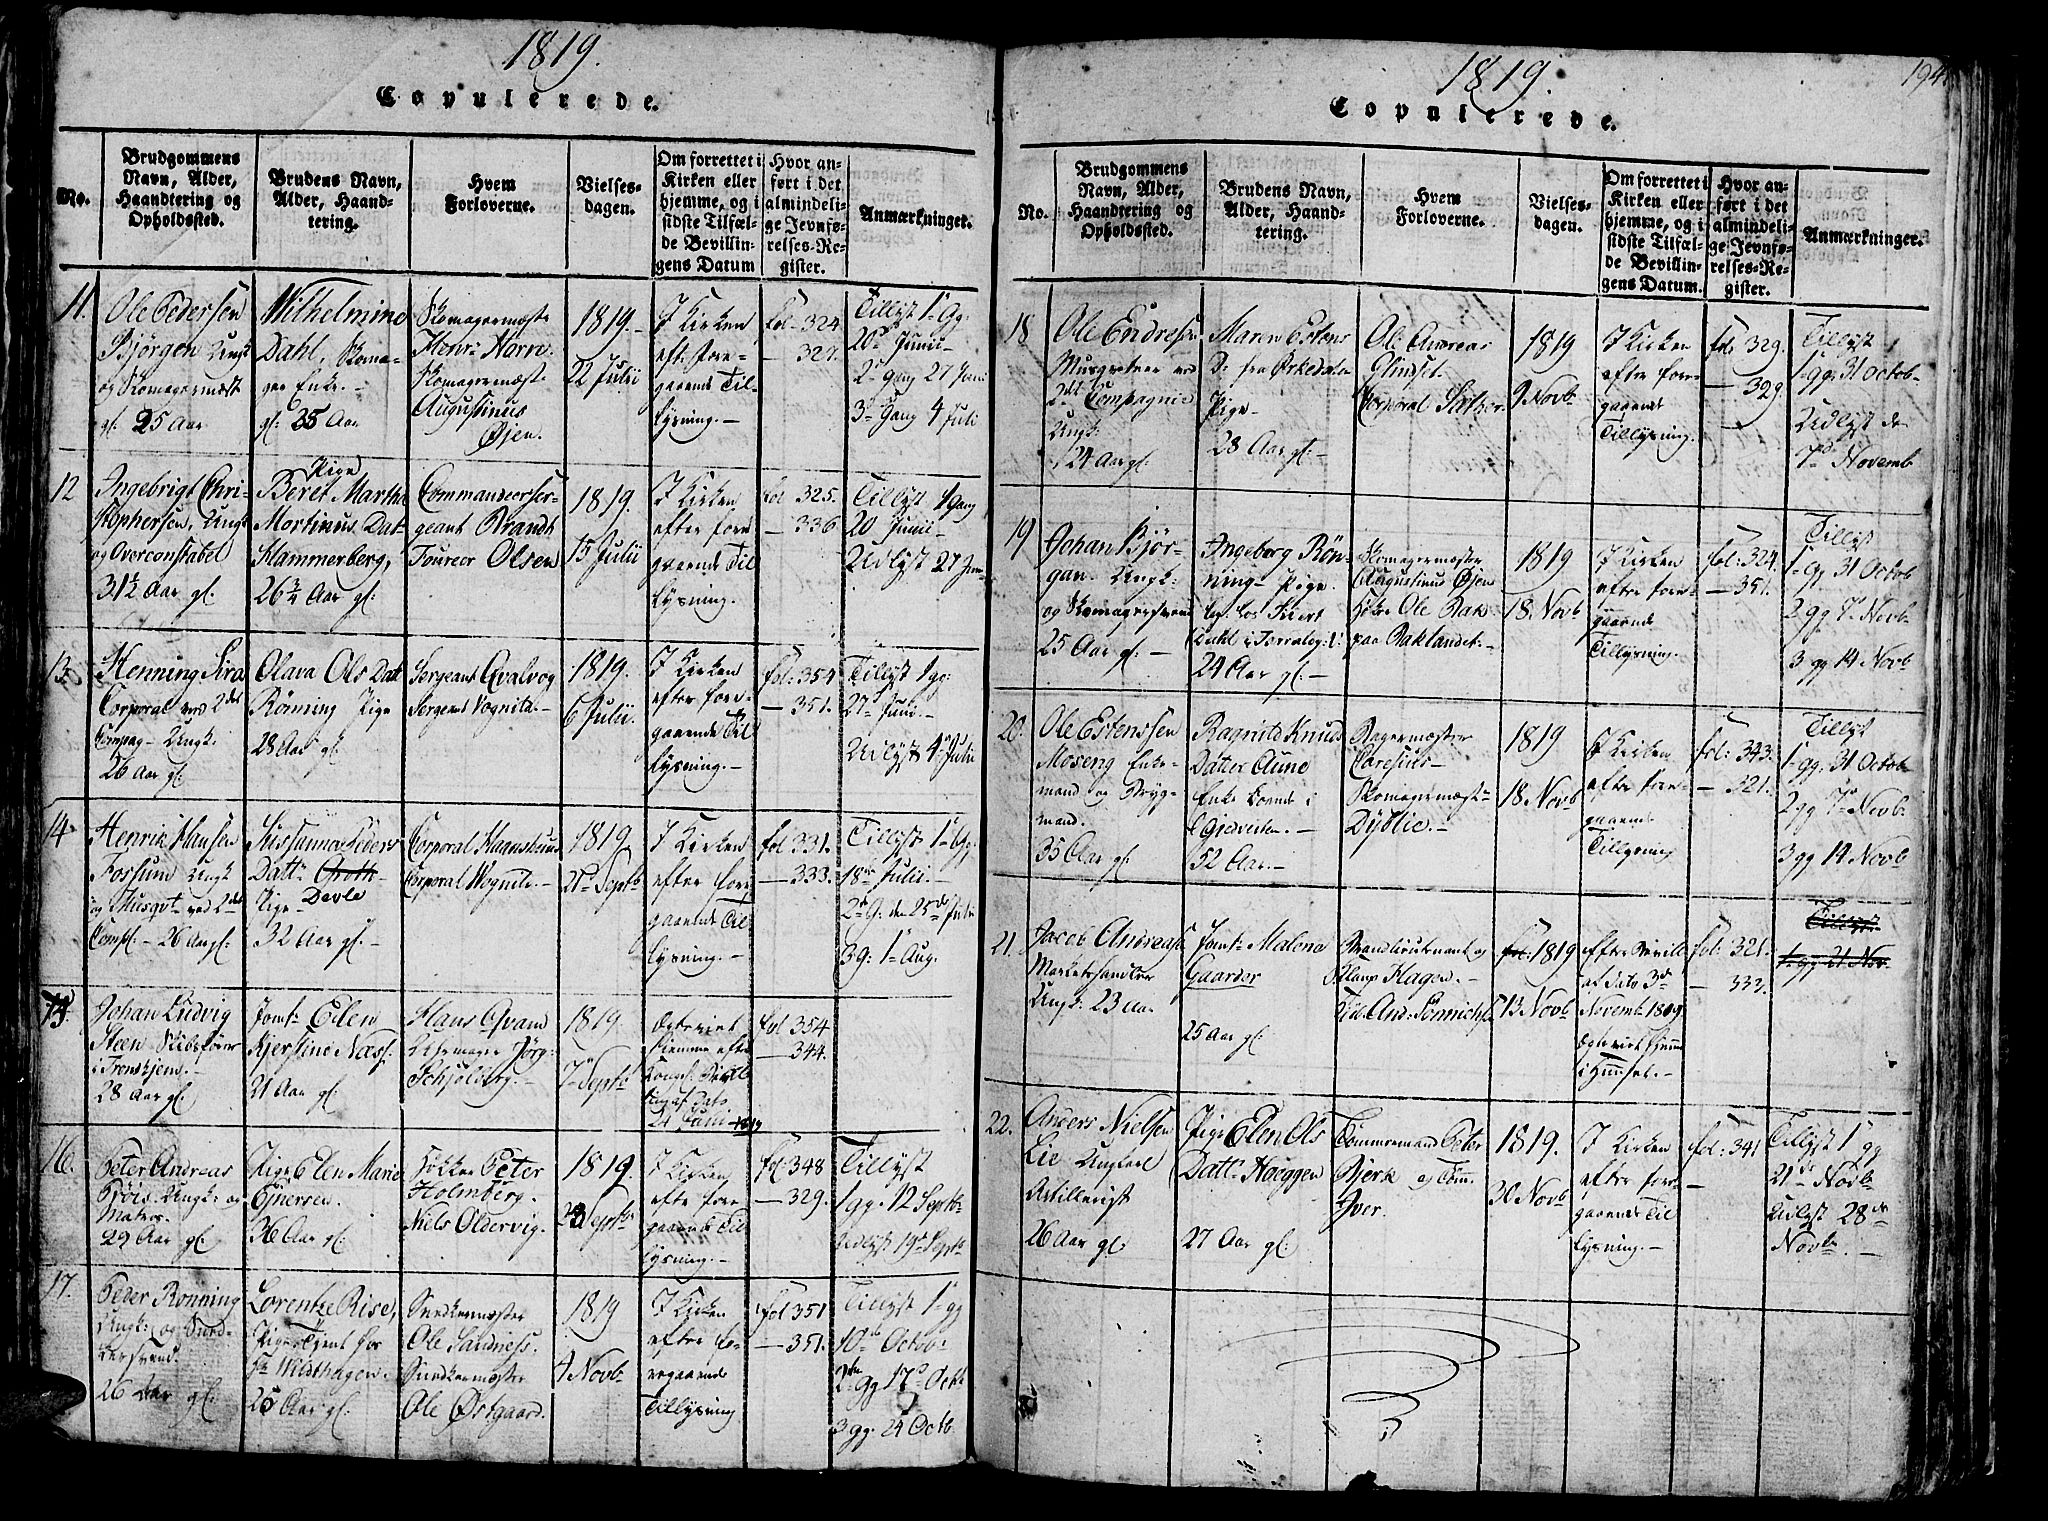 1819.
Copulerede.
No.
Brudgommens
Navn, Alder,
Haandtering og
Opholdssted.
Brudens Navn,
Alder, Haand-
tering.
Hvem
Forloverne.
Vielses-
dagen.
Om forrettet i
Kirken eller
hjemme, og i
sidste Tilfæl-
de Bevillin-
gens Datum
Hvor an-
ført i det
almindeli-
ge Jevnfø-
relses-Re-
gister.
Anmærkninger.
11.
Ole Pedersen
Bjørgen Ungk:
og Skomagermest
gl. 25 Aar
Wilhelmine
Dahl, Skoma-
ger Enke.
gl: 35 Aar
Skomagermeste
Henr: Horn.
Skomagermæst.
Augustinus
Øjen.
1819.
22 Julii
I Kirken
eft: fore-
gaaende Til-
lysning.
fol. 324
327.
Tillyst 1 Gg:
20 Junii
2 gang 27 Juni
3 Gang 4 Juli
12
Ingebrigt Chri-
stophersen, Ungk
og Overconstabel
31½ Aar gl.
Pige
Beret Martha
Mortinus Dat
Hammerberg,
26¾ Aar gl.
Commandeerser-
geant Brandt
Foureer Olsen
1819.
15 Julii
I Kirken
efter fore
gaaende Til
lysning.
fol 325.
336
Tillyst 1 Gang
20 Junii
Udlyst 27 Jun
13.
Henning Sira
Corporal ved 2det
Compag- Ungk.
26 Aar gl.
Olava Ols Datt
Rønning Pige
28 Aar gl.
Sergeant Qvalvog
Sergeant Vognild.
1819.
6 Julii.
I Kirken
efter fore
gaaende Til
lysning.
fol: 354
351.
Tillyst 1 gg:
27 Juni.
Udlyst 4 Julii
14.
Henrik Hansen
Fossum Ungk
og Musqvt ved 2det
Comp. 26 Aar gl.
Susanna Peders
Datt: Groth
Pige Devle
32 Aar gl.
Corporal
Corporal Wognild.
1819
21 Septb
I Kirken
efter fore
gaaende Til
lysning.
fol 331.
333.
Tillyst 1 Gg.
18 Julii.
2 G: den 25 Julii
3 G: 1 Aug.
15.
Johan Ludvig
Steen Skibsfører
i Tronhjem.
28 Aar gl.
Jomf: Elen
Kjerstine Næss.
21 Aar gl.
Hans Qvand
Uhrmager Jørg:
Schjølberg.
1819
7 Septb
Ægteviet
hjemme efter
Kongl: Bevill
ning af Dato
24 Juni 1819
fol 354
344.
16.
Peter Andreas
Ungk: og
Matros.
29 Aar gl.
Pige Elen Marie
Ejnersen.
36 Aar gl.
Peter
Holmberg.
Niels Oldervig.
1819.
Septb
I Kirken
efter fore
gaaende Til
lysning.
fol 348
329.
Tillyst
1 gg: 12 Septb
Udlyst 19 Septb
17.
Peder Rønning
Ungk: og Sned-
kersvend.
26 Aar gl.
Lorentze Rise,
Pige Tjent hos
Widthagen.
25 Aar gl.
Snedkermester
Ole Sandness.
Snedkermester
Ole Østgaard.
1819
4 Novb
I Kirken
efter fo-
regaaende
Tillysning
fol 351
351.
Tillyst 1 gg
10 Octob
2 Gg 17 Octb
3 gg: 24 Octb.
1819.
194
Copulerede.
No.
Brudgommens
Navn, Alder,
Haandtering og
Opholdssted.
Brudens Navn,
Alder, Haand-
tering.
Hvem
Forloverne.
Vielses-
dagen.
Om forrettet i
Kirken eller
hjemme, og i
sidste Tilfæl-
de Bevillin-
gens Datum.
Hvor an-
ført i det
almindeli-
ge Jevnfø-
relses-Re-
gister.
Anmærkninger.
18
Ole Endresen
Musqveteer ved
2det Compagnie
Ungk:
24 Aar gl.
Maren Estens
D. fra Ørkedalen
Pige
28 Aar gl.
Ole Andreas
Glindset.
Corporal
1819
9 Novb
I Kirken
efter fore-
gaaende
Tillysning.
fol 329.
329.
Tillyst
1 gg: 31 octob
Udlyst de
7 Novemb
19
Johan Bjør-
gan. Ungk:
og Skomagersvend
25 Aar gl.
Ingeborg Røn-
ning Pige.
24 Aar gl.
Skomagermester
Augustinus Øjen
Ole Bak
paa Baklandet.
1819
18 Novb
I Kirken
efter fore-
gaaende
Tillysning.
fol: 324.
351.
Tillyst
1 gg 31 Octob
2 gg 7 Novb.
3 gg 14 Novb
20.
Ole Estenssen
Moseng Enke-
mand og Bryg-
mand.
35 Aar gl:
Ragnild Knuds
Datter Aune
Enke boende i
52 Aar.
Bagermester
Coresius
Skomagermæst:
Dyblie.
1819
18 Novb
I Kirken
efter fore-
gaaende
Tillysning
fol: 343.
321.
Tillyst
1 gg: 31 Octob
2 gg 7 Novb
3 gg 14 Novb
21.
Jacob Andreas
Markedshandler
Ungk: 23 Aar
Jomf: Malena
Gaarder
25 Aar gl.
Brandlieutenant
Hagen.
And:
fol: 1819
13 Novb
efter Bevill
af Dato 3
Novemb 1819
Ægteviet hjemme
i Huuset.
fol: 321.
333.
Tillyst
1 gg 21 Nov.
22.
Anders Nielsen
Lie Ungkarl
Artillerist
26 Aar gl
Pige Elen Ols
Datt: Hoeggen
27 Aar gl.
Tømmermand Peter
Bjerk og Tømm.
Iver.
1819.
30 Novb
I Kirken
efter fore-
gaaende Til
lysning.
fol: 341
Tillyst 1 gg
21 Novb
Udlyst 28
Novb.